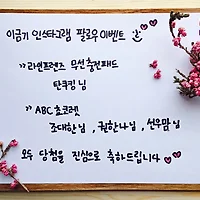 이금기 인스타그램 팔로우 이벤트
>> 라인프렌즈 무선충전패드
탄쿠킹 님
>> ABC 초코렛
조대한 님, 권한나 님, 선우맘 님
모두 당첨을 진심으로 축하드립니다